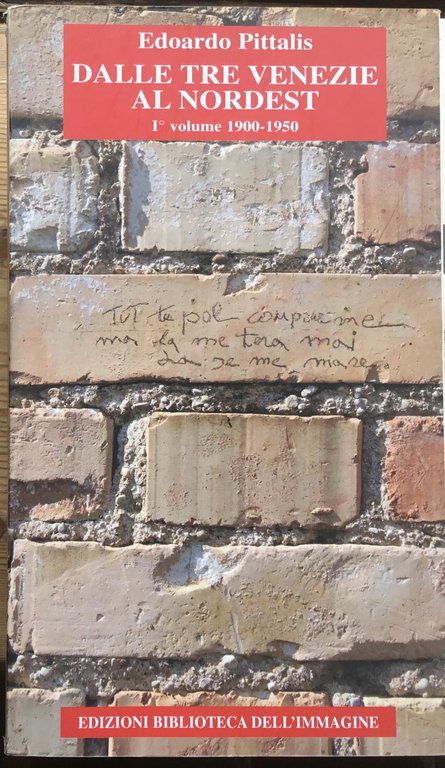 Edoardo Pittalis
DALLE TRE VENEZIE
AL NORDEST
I° volume 1900-1950
TUT te pol comprarme
ma la me tera mai
la xe me mare
EDIZIONI BIBLIOTECA DELL'IMMAGINE